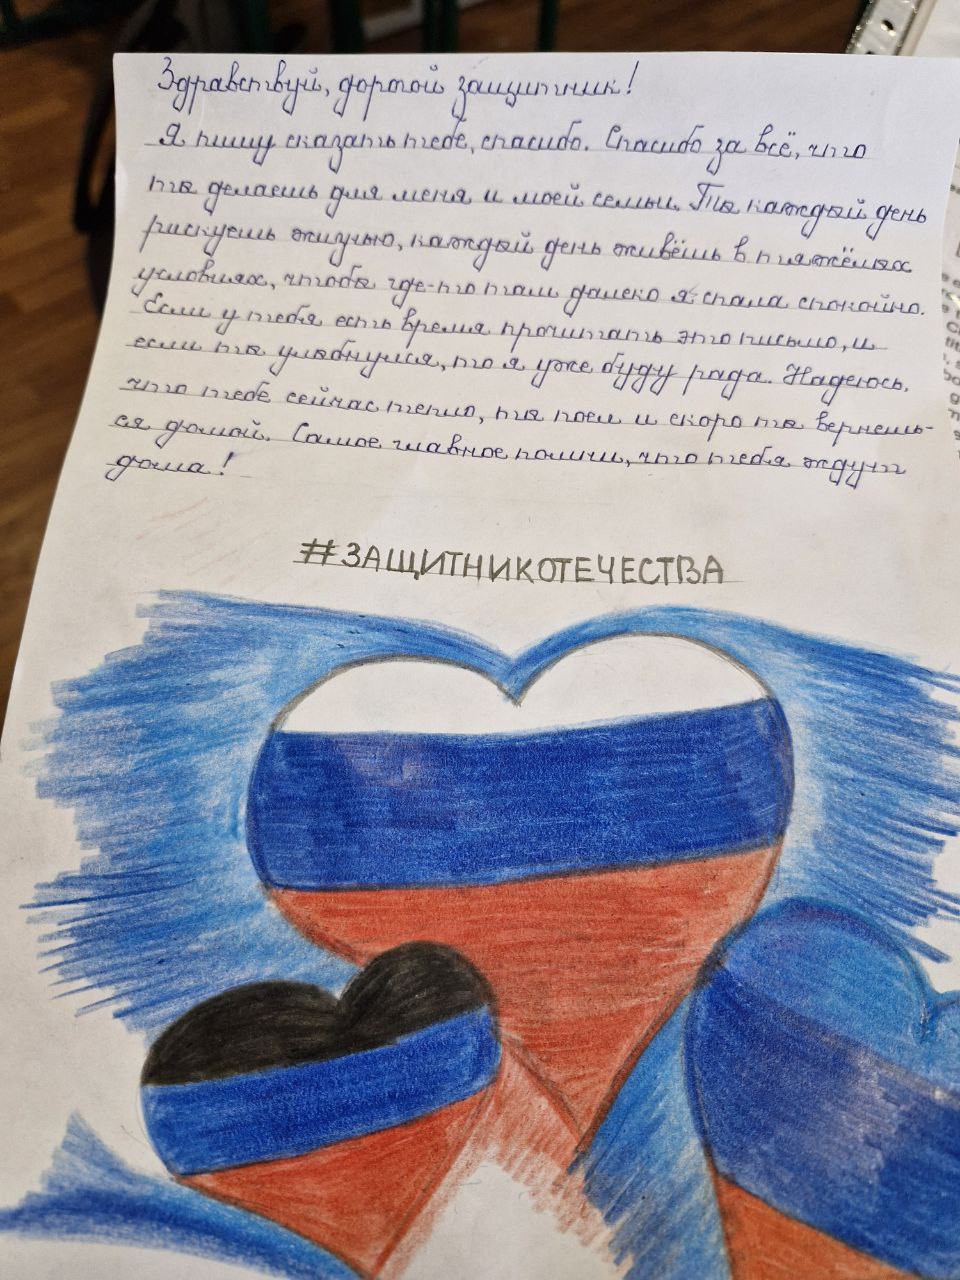 Здравствуй, дорогой защитник!
Я пишу сказать тебе, спасибо. Спасибо за всё, что
ты делаешь для меня и моей семьи. Ты каждый день
рискуешь жизнью, каждый день живёшь в тяжёлых
условиях, чтобы где-то там далеко я спала спокойно.
Если у тебя есть время прочитать это письмо, и
если ты улыбнулся, то я уже буду рада. Надеюсь,
что тебе сейчас тепло, ты поел и скоро ты вернешь-
ся домой. Самое главное помни, что тебя ждут
дома!
#ЗАЩИТНИКОТЕЧЕСТВА